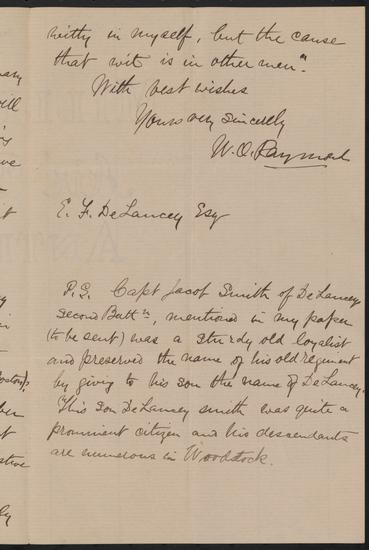 witty in myself, but the cause
that wit is in other men."
With best wishes
Yours very sincerely
W. O. Raymond
E. F. DeLancey Esq
P.S. Capt Jacob Smith of DeLancey
second Battn, mentioned in my paper
(to be sent) was a sturdy old loyalist
and preserved the name of his old regiment
by giving to his son the name of DeLancey.
This son DeLancey Smith was quite a
prominent citizen and his descendants
are numerous in Woodstock.